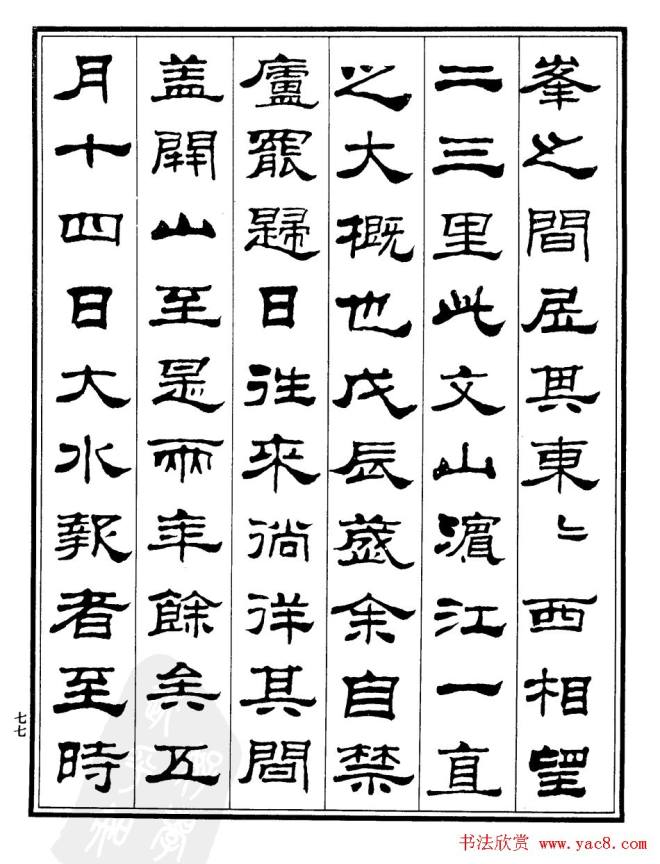 峯之間居其東〻西相望
二三里此文山濱江一直
之大概也戊辰歲余自禁
廬罷歸日往來徜徉其間
盖開山至是兩年餘矣五
月十四日大水報者至時
七七
书法欣赏 www.yac8.com